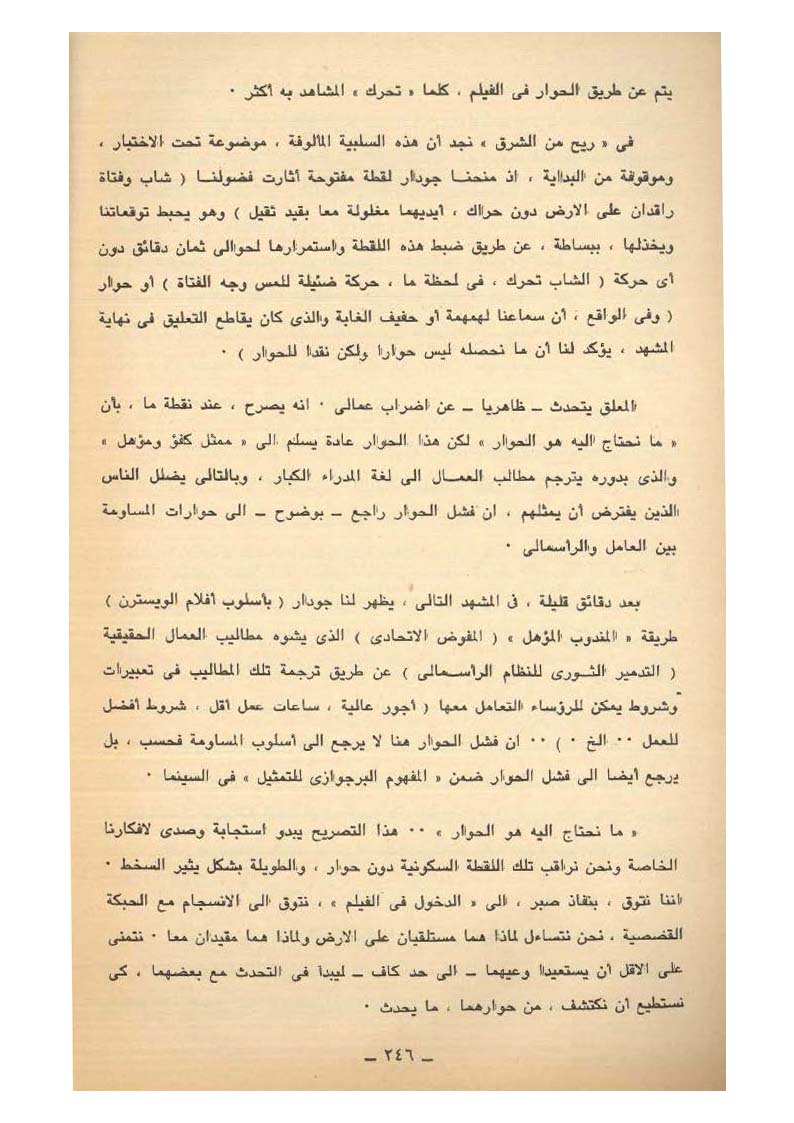 يتم عن طريق الحوار فى الفيلم ، كلما « تحرك » المشاهد به أكثر ٠
فى « ريح من الشرق » نجد أن هذه السلبية المألوفة ، موضوعة تحت الاختبار ،
وموقوفة من البداية ، اذ منحنا جودار لقطة مفتوحة أثارت فضولنا ( شاب وفتاة
راقدان على الارض دون حراك ، أيديهما مغلولة معا بقيد ثقيل ) وهو يحبط توقعاتنا
ويخذلها ، ببساطة ، عن طريق ضبط هذه اللقطة واستمرارها لحوالى ثمان دقائق دون
أى حركة ( الشاب تحرك ، فى لحظة ما ، حركة ضئيلة للمس وجه الفتاة ) أو حوار
( وفى الواقع ، أن سماعنا لهمهمة أو حفيف الغابة والذى كان يقاطع التعليق فى نهاية
المشهد ، يؤكد لنا أن ما نحصله ليس حوارا ولكن نقدا للحوار ) ٠
المعلق يتحدث ــ ظاهريا ــ عن اضراب عمالى ٠ انه يصرح ، عند نقطة ما ، بأن
« ما نحتاج اليه هو الحوار » لكن هذا الحوار عادة يسلم الى « ممثل كفؤ ومؤهل »
والذى بدوره يترجم مطالب العمال الى لغة المدراء الكبار ، وبالتالى يضلل الناس
الذين يفترض أن يمثلهم ، ان فشل الحوار راجع ــ بوضوح ــ الى حوارات المساومة
بين العامل والرأسمالى ٠
بعد دقائق قليلة ، فى المشهد التالى ، يظهر لنا جودار ( بأسلوب أفلام الويسترن )
طريقة « المندوب المؤهل » ( المفوض الاتحادى ) الذى يشوه مطاليب العمال الحقيقية
( التدمير الثورى للنظام الرأسمالى ) عن طريق ترجمة تلك المطاليب فى تعبيرات
وشروط يمكن للرؤساء التعامل معها ( أجور عالية ، ساعات عمل أقل ، شروط أفضل
للعمل ٠٠ الخ ٠ ) ٠٠ ان فشل الحوار هنا لا يرجع الى أسلوب المساومة فحسب ، بل
يرجع أيضا الى فشل الحوار ضمن « المفهوم البرجوازى للتمثيل » فى السينما ٠
« ما نحتاج اليه هو الحوار » ٠٠ هذا التصريح يبدو استجابة وصدى لافكارنا
الخاصة ونحن نراقب تلك اللقطة السكونية دون حوار ، والطويلة بشكل يثير السخط ٠
اننا نتوق ، بنفاذ صبر ، الى « الدخول فى الفيلم » ، نتوق الى الانسجام مع الحبكة
القصصية ، نحن نتساءل لماذا هما مستلقيان على الارض ولماذا هما مقيدان معا ٠ نتمنى
على الاقل أن يستعيدا وعيهما ــ الى حد كاف ــ ليبدآ فى التحدث مع بعضهما ، كى
نستطيع أن نكتشف ، من حوارهما ، ما يحدث ٠
ــ ٢٤٦ ــ